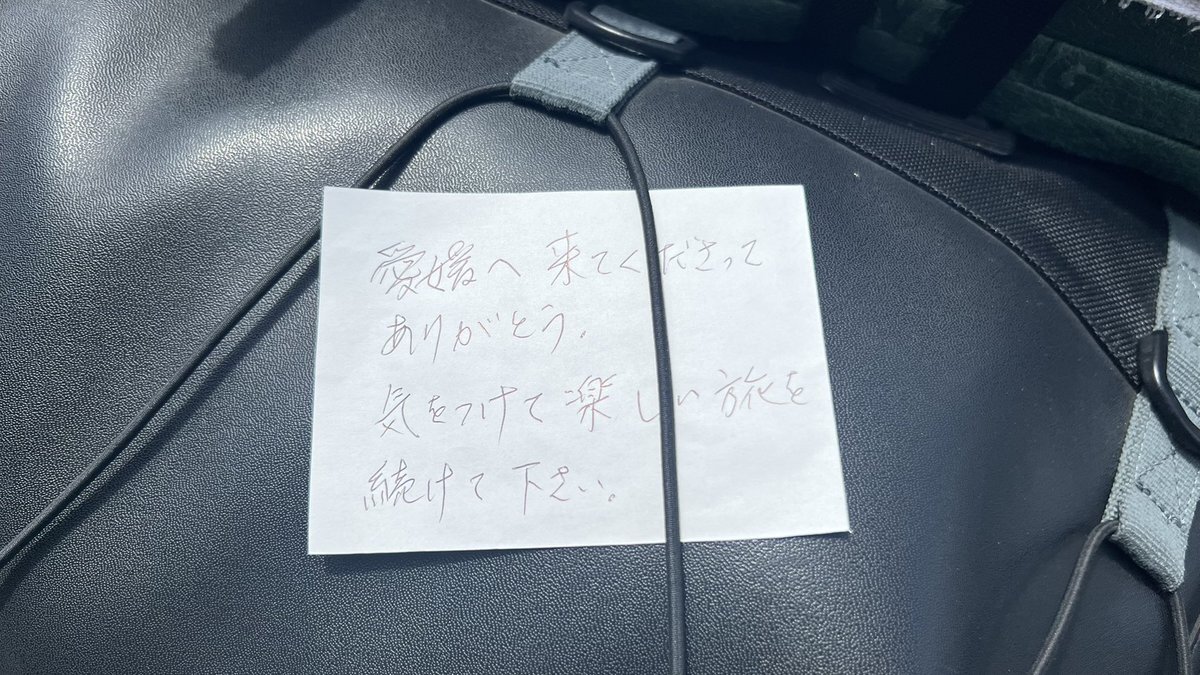 愛媛へ 来てくださって
ありがとう。
気をつけて 楽しい 旅を
続けて 下さい。